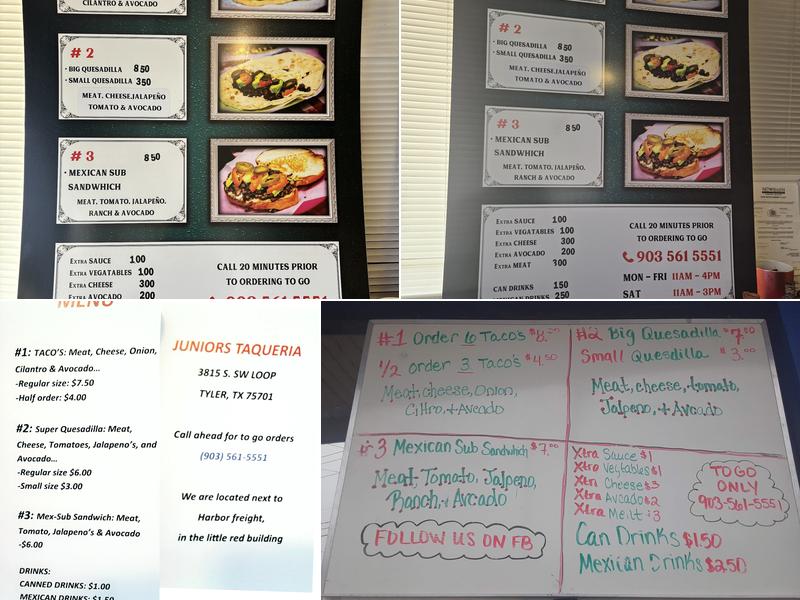 CILANTRO & AVOCADO
# 2
• BIG QUESADILLA 850
• SMALL QUESADILLA 350
MEAT, CHEESE,JALAPEÑO
TOMATO & AVOCADO
# 3
850
• MEXICAN SUB
SANDWHICH
MEAT, TOMATO, JALAPEÑO,
RANCH & AVOCADO
EXTRA SAUCE 100
EXTRA VEGATABLES 100
EXTRA CHEESE 300
EXTRA AVOCADO 200
CALL 20 MINUTES PRIOR
TO ORDERING TO GO
903 561 5551
# 2
• BIG QUESADILLA 850
• SMALL QUESADILLA 350
MEAT, CHEESE,JALAPEÑO
TOMATO & AVOCADO
# 3
850
• MEXICAN SUB
SANDWHICH
MEAT, TOMATO, JALAPEÑO,
RANCH & AVOCADO
EXTRA SAUCE 100
EXTRA VEGATABLES 100
EXTRA CHEESE 300
EXTRA AVOCADO 200
EXTRA MEAT 300
CAN DRINKS 150
MEXICAN DRINKS 250
CALL 20 MINUTES PRIOR
TO ORDERING TO GO
903 561 5551
MON - FRI 11AM - 4PM
SAT 11AM - 3PM
MENU
#1: TACO'S: Meat, Cheese, Onion,
Cilantro & Avocado...
-Regular size: $7.50
-Half order: $4.00
#2: Super Quesadilla: Meat,
Cheese, Tomatoes, Jalapeno's, and
Avocado...
-Regular size $6.00
-Small size $3.00
#3: Mex-Sub Sandwich: Meat,
Tomato, Jalapeno's & Avocado
-$6.00
DRINKS:
CANNED DRINKS: $1.00
MEXICAN DRINKS: $1.50
JUNIORS TAQUERIA
3815 S. SW LOOP
TYLER, TX 75701
Call ahead for to go orders
(903) 561-5551
We are located next to
Harbor freight,
in the little red building
#1 Order 6 Taco's $8.00
1/2 order 3 Taco's $4.50
Meat, cheese, Onion,
Ciltro, + Avcado
#2 Big Quesadilla $7.50
Small Quesdilla $3.00
Meat, cheese, tomato,
Jalpeno, + Avcado
#3 Mexican Sub Sandwhich $7.00
Meat, Tomato, Jalpeno,
Ranch + Avrcado
FOLLOW US ON FB
Xtra Sauce $1
Xtra Vegtables $1
Xtra Cheese $3
Xtra Avocado $2
Xtra Meat $3
TO GO
ONLY
903-561-5551
Can Drinks $1.50
Mexican Drinks $2.50